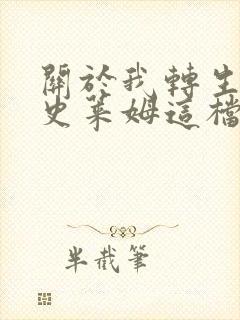 關於我轉生
史萊姆這檔
半截筆